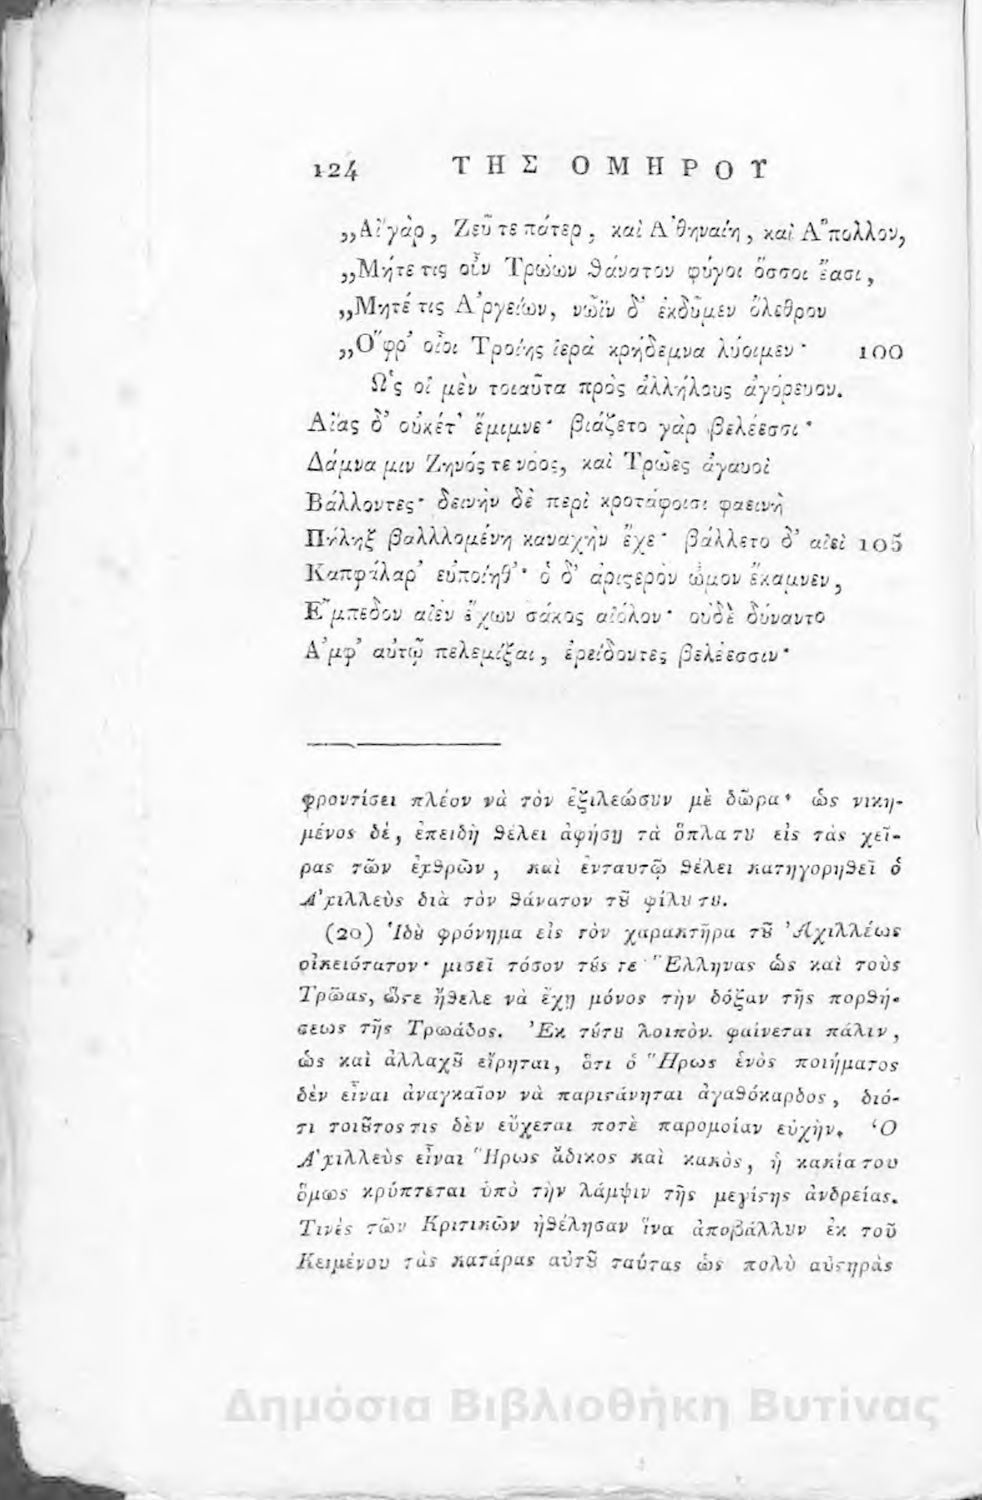 124 ΤΗΣ ΟΜΗΡΟΥ
„Αἲ γὰρ, Ζεῦ τε πάτερ, καὶ Ἀθηναίη, καὶ Ἄπολλον,
„Μήτε τις οὖν Τρώων θάνατον φύγοι ὅσσοι ἔασι,
„Μητέ τις Ἀργείων, νῶϊν δ' ἐκδῦμεν ὄλεθρον
„Ὄφρ' οἶοι Τροίης ἱερὰ κρήδεμνα λύοιμεν· 100
Ὣς οἱ μὲν τοιαῦτα πρὸς ἀλλήλους ἀγόρευον.
Αἴας δ' οὐκέτ' ἔμιμνε· βιάζετο γὰρ βελέεσσι·
Δάμνα μιν Ζηνός τε νόος, καὶ Τρῶες ἀγαυοὶ
Βάλλοντες· δεινὴν δὲ περὶ κροτάφοισι φαεινὴ
Πήληξ βαλλλομένη καναχὴν ἔχε· βάλλετο δ' αἰεὶ 105
Καπφάλαρ' εὐποίηθ'· ὁ δ' ἀριϛερὸν ὦμον ἔκαμνεν,
Ἔμπεδον αἰὲν ἔχων σάκος αἰόλον· οὐδὲ δύναντο
Ἀμφ' αὐτῷ πελεμίξαι, ἐρείδοντες βελέεσσιν·
φροντίσει πλέον νὰ τὸν ἐξιλεώσȣν μὲ δῶρα· ὡς νικη-
μένος δὲ, ἐπειδὴ θέλει ἀφήσῃ τὰ ὅπλα τȣ εἰς τὰς χεῖ-
ρας τῶν ἐχθρῶν, καὶ ἐνταυτῷ θέλει κατηγορηθεῖ ὁ
Ἀχιλλεὺς διὰ τὸν θάνατον τȣ͂ φίλȣ τȣ.
(20) Ἰδȣ̀ φρόνημα εἰς τὸν χαρακτῆρα τȣ͂ Ἀχιλλέως
οἰκειότατον· μισεῖ τόσον τȣ́ς τε Ἕλληνας ὡς καὶ τοὺς
Τρῶας, ὥϛε ἤθελε νὰ ἔχῃ μόνος τὴν δόξαν τῆς πορθή-
σεως τῆς Τρωάδος. Ἐκ τȣ́τȣ λοιπὸν φαίνεται πάλιν,
ὡς καὶ ἀλλαχȣ͂ εἴρηται, ὅτι ὁ Ἥρως ἑνὸς ποιήματος
δὲν εἶναι ἀναγκαῖον νὰ παριϛάνηται ἀγαθόκαρδος, διό-
τι τοιȣ͂τος τις δὲν εὔχεται ποτὲ παρομοίαν εὐχὴν. Ὁ
Ἀχιλλεὺς εἶναι Ἥρως ἄδικος καὶ κακὸς, ἡ κακία του
ὅμως κρύπτεται ὑπὸ τὴν λάμψιν τῆς μεγίϛης ἀνδρείας.
Τινὲς τῶν Κριτικῶν ἠθέλησαν ἵνα ἀποβάλλȣν ἐκ τοῦ
Κειμένου τὰς κατάρας αὐτȣ͂ ταύτας ὡς πολὺ αὐϛηρὰς
Δημόσια Βιβλιοθήκη Βυτίνας